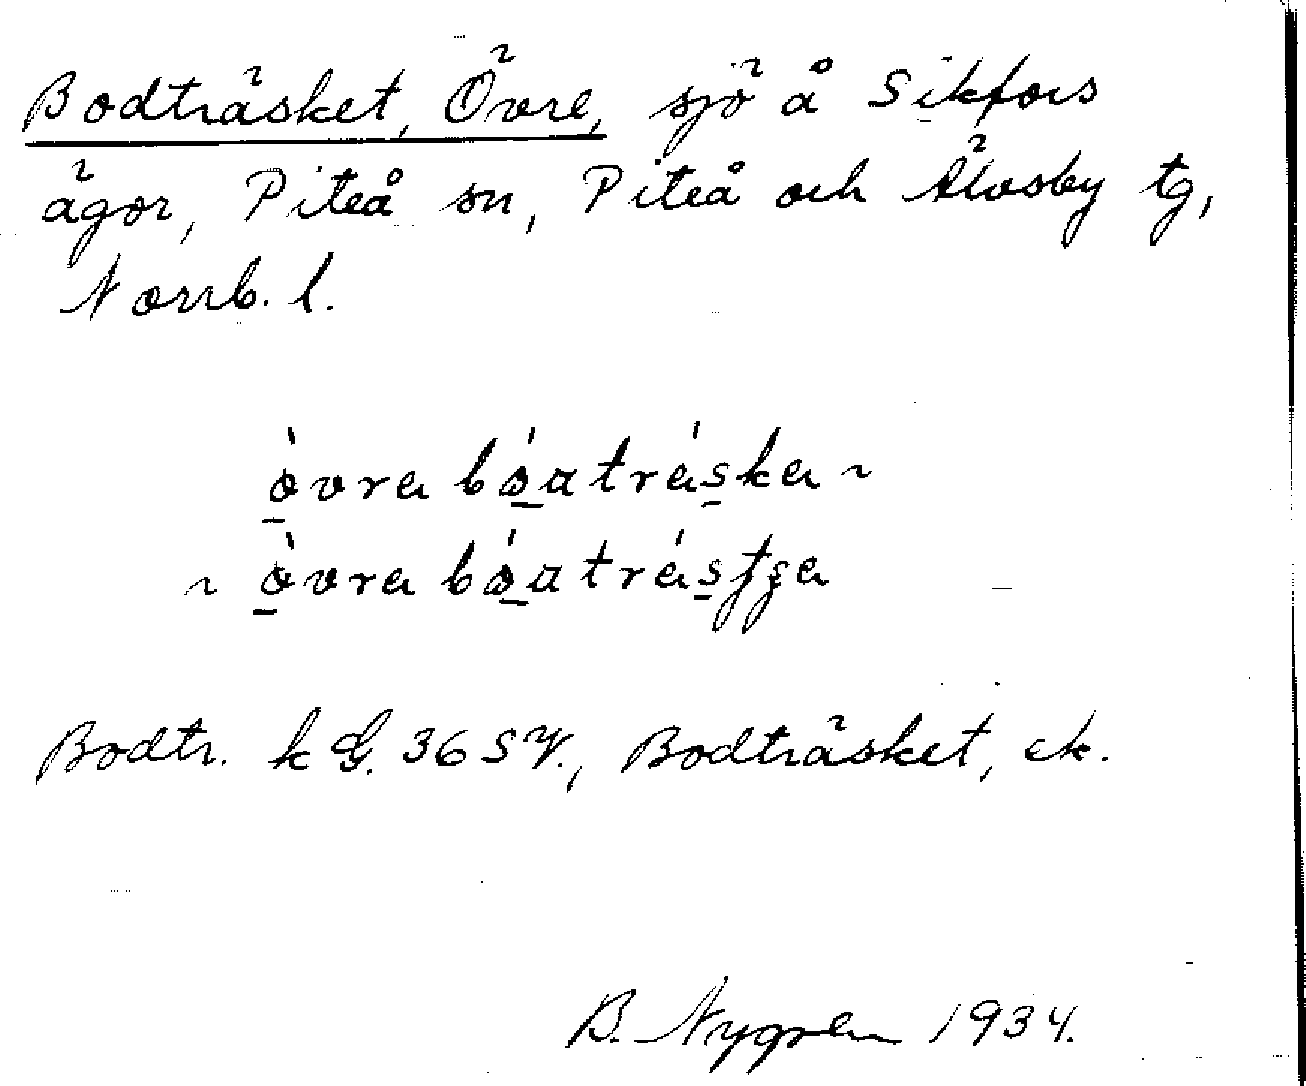 Bodträsket, Övre, sjö å Sikfors
ägor, Piteå sn, Piteå och Älvsby tg,
Norrb. l.
òvra bóatráska ~
~ òvra bóatrás
Bodtr. k G. 36 SV., Bodträsket, ek.
B. Nygren 1934.